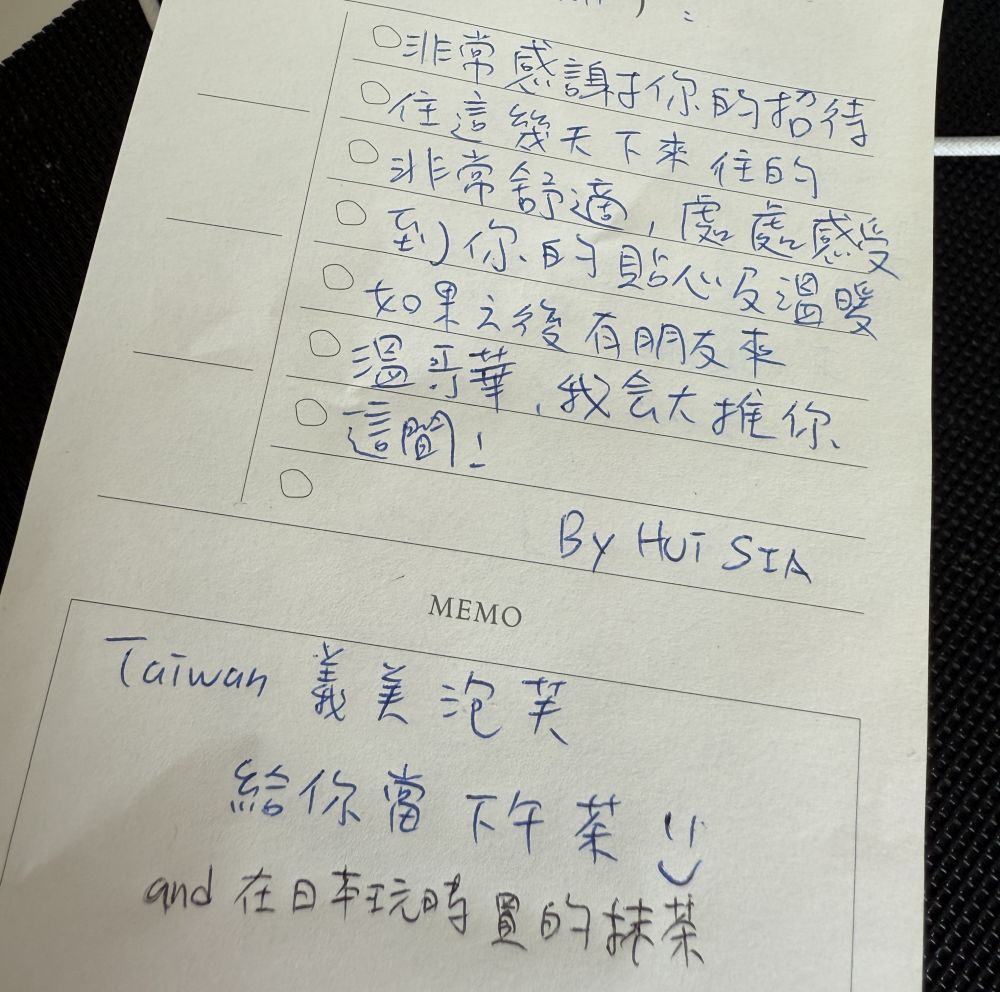 非常感謝你的招待
住這幾天下來住的
非常舒適，處處感受
到你的貼心及溫暖
如果之後有朋友來
溫哥華，我会大推你
這間！
By HUI SIA
MEMO
Taiwan 義美泡芙
給你當下午茶
and 在日本玩時買的抹茶